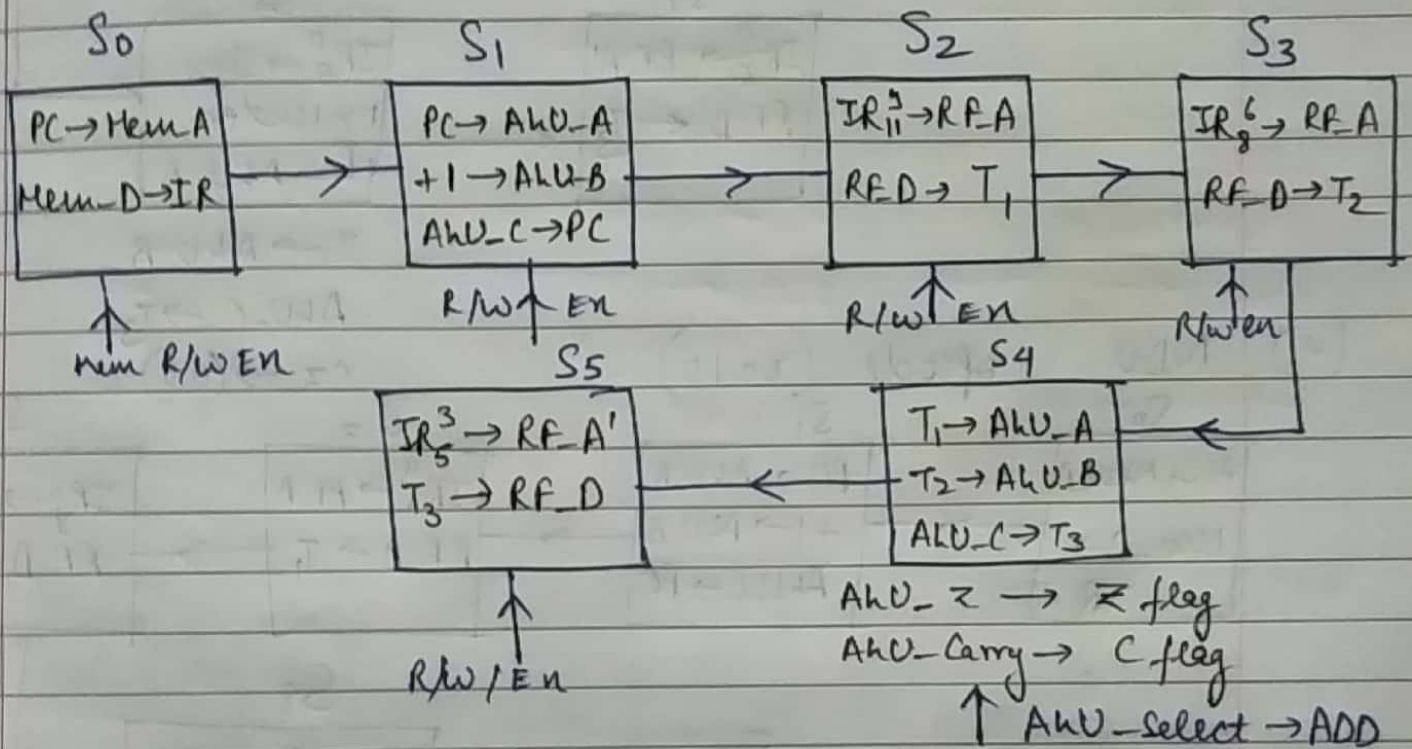 S0
PC → Mem A
Mem_D → IR
mem R/W EN
S1
PC → ALU_A
+1 → ALU-B
ALU_C → PC
R/W EN
S2
IR⁹₁₁ → RF_A
RF_D → T₁
R/W EN
S3
IR⁶₈ → RF_A
RF_D → T₂
R/W en
S4
T₁ → ALU_A
T₂ → ALU_B
ALU_C → T₃
ALU_Z → Z flag
ALU_Carry → C flag
↑ ALU_Select → ADD
S5
IR³₅ → RF_A'
T₃ → RF_D
R/W/EN